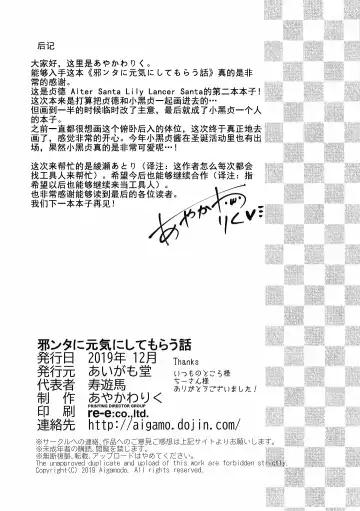 后记
大家好，这里是あやかわりく。
能够入手这本《邪ンタに元気にしてもらう話》真的是非
常的感谢。
这是贞德 Alter Santa Lily Lancer Santa的第二本本子！
这次本来是打算把贞德和小黑贞一起画进去的…
但画到一半的时候临时改了主意，最后就成了小黑贞一个人
的本子。
之前一直都很想画这个俯卧后入的体位，这次终于真正地去
画了，感觉非常的开心。今年小黑酱在圣诞活动里也有出
场，果然小黑贞真的是非常可爱呢…！
这次来帮忙的是綾瀬あとり（译注：这作者怎么每次都会
找工具人来帮忙）。希望今后也能够继续合作（译注：指
希望以后也能够继续来当工具人）。
也非常感谢能够读到最后的各位读者。
我们下一本本子再见！
あやかわりく
邪ンタに元気にしてもらう話
発行日 2019年 12月
発行元 あいがも堂
代表者 寿遊馬
制 作 あやかわりく
PRINTING DIRECTOR GROUP
印 刷 re-e:co.,ltd.
連絡先 http://aigamo.dojin.com/
Thanks
いつものところ様
ちーさん様
ありがとうございました！
※サークルへの連絡、作品へのご意見ご感想は上記サイトよりお願いします。
※未成年者の購読、閲覧を禁じます。
※無断複製、転載、アップロードはやめてください。
The unapproved duplicate and upload of this work are forbidden strictly.
Copyright(C) 2019 Aigamodo. All rights reserved.